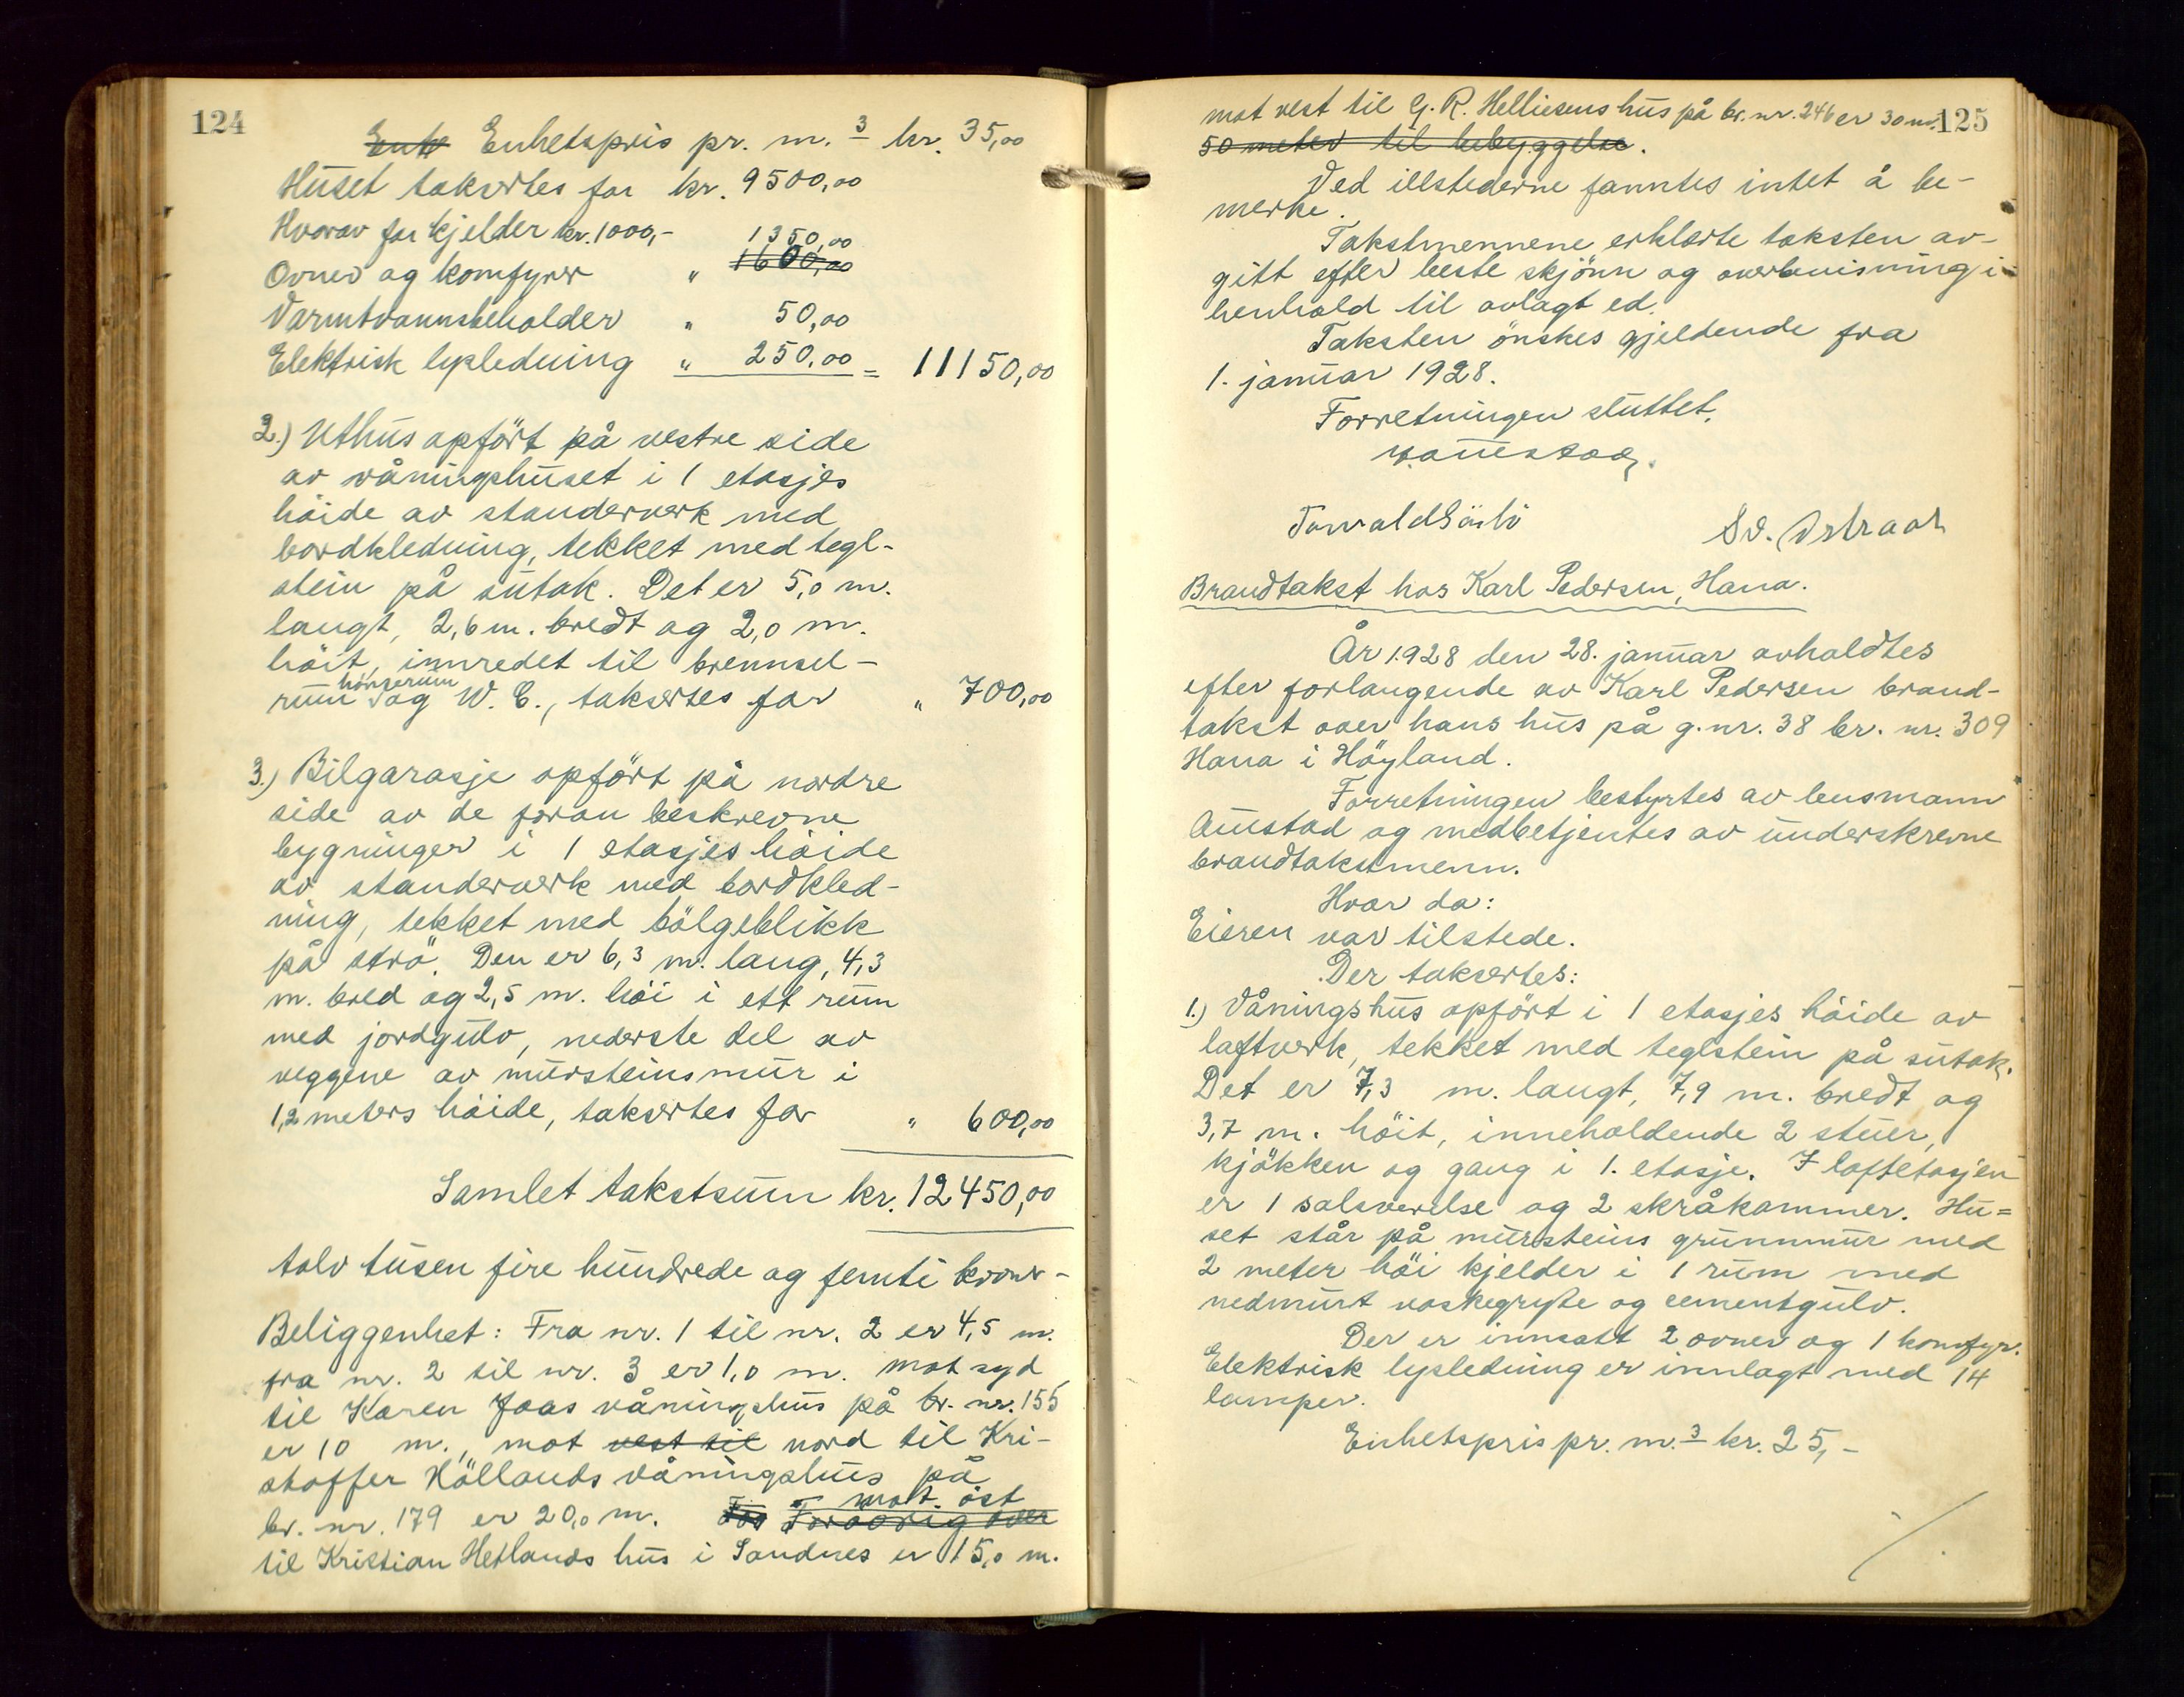 124
Enh Enhetspris pr. m.3 kr. 35,00
Huset takertes for kr. 9500,00
Hvorav for kjelder kr. 1000,-
1350,00
Ovner og komfyrer " 1600,00
Varmtvannsbeholder " 50,00
Elektrisk lysledning " 250,00 = 11150,00
2.) Uthus opfört på vestre side
av våningshuset i 1 etasjes
höide av standerverk med
bordkledning, tekket med tegl-
stein på sutak. Det er 5,0 m.
langt, 2,6 m. bredt og 2,0 m.
höit, innredet til brennsel-
hönserum
rum og W. C., takertes for " 700,00
3.) Bilgarasje opfört på nordre
side av de foran beskrevne
bygninger i 1 etasjes höide
av standerverk med bordkled-
ning, tekket med bölgeblikk
på strö. Den er 6,3 m. lang, 4,3
m. bred og 2,5 m. höi i ett rum
med jordgulv, nederste del av
veggene av mursteinsmur i
1,2 meters höide, takertes for " 600,00
Samlet takstsum kr. 12450,00
tolv tusen fire hundrede og femti kroner-
Beliggenhet: Fra nr. 1 til nr. 2 er 4,5 m.
fra nr. 2 til nr. 3 er 1,0 m. mot syd
til Karen Joas våningshus på br. nr. 155
er 10 m., mot vest til nord til Kri-
stoffer Höllands våningshus på
mot öst
br. nr. 179 er 20,0 m. For Forövrig over
til Kristian Hetlands hus i Sandnes er 15,0 m.
125
mot vest til G. R. Helliesens hus på br. nr. 246 er 30 m.
50 meter til bebyggelse.
Ved illstederne fanntes intet å be-
merke.
Takstmennene erklærte taksten av-
gitt efter beste skjönn og overbevisning i
henhold til avlagt ed.
Taksten önskes gjeldende fra
1. januar 1928.
Forretningen sluttet.
Torvald
Brandtakst hos Karl Pedersen, Hana.
År 1928 den 28. januar avholdtes
efter forlangende av Karl Pedersen brand-
takst over hans hus på g. nr. 38 br. nr. 309
Hana i Höyland.
Forretningen bestyrtes av lensmann
Aurstad og medbetjentes av underskrevne
brandtakstmenn.
Hvor da:
Eieren var tilstede.
Der takertes:
1.) Våningshus opfört i 1 etasjes höide av
laftverk, tekket med teglstein på sutak.
Det er 7,3 m. langt, 7,9 m. bredt og
3,7 m. höit, inneholdende 2 stuer,
kjökken og gang i 1. etasje. I loftetasjen
er 1 salsverelse og 2 skråkammer. Hu=
set står på mursteins grunnmur med
2 meter höi kjelder i 1 rum med
nedmurt vaskegryte og cementgulv.
Der er innsatt 2 ovner og 1 komfyr.
Elektrisk lysledning er innlagt med 14
lamper.
Enhetspris pr. m.3 kr. 25,-